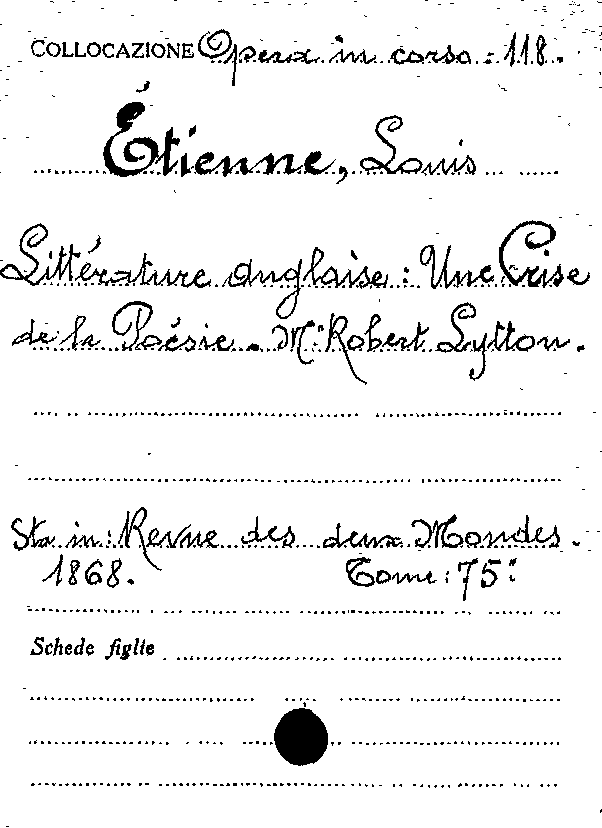 COLLOCAZIONE Opera in corso : 118.
Étienne, Louis
Littérature anglaise : Une Crise
de la Poésie. Mr. Robert Lytton.
Sta in: Revue des deux Mondes.
1868. Tome: 75:
Schede figlie